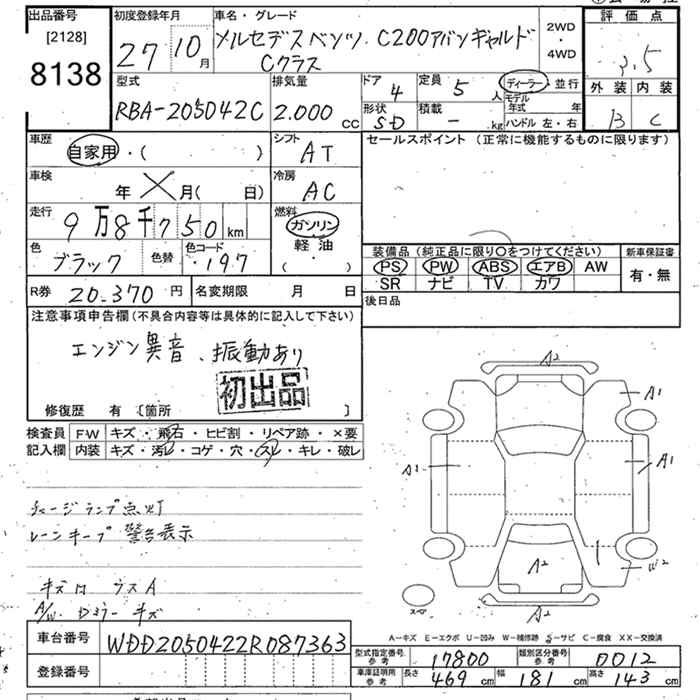 出品番号
[2128]
8138
初度登録年月
27 10月
車名・グレード
メルセデスベンツ C200アバンギャルド
Cクラス
2WD
4WD
評価点
3.5
外装 内装
B C
型式
RBA-205042C
排気量
2.000 cc
ドア 4
定員 5 人
ディーラー・並行
形状 SD
積載 - kg
モデル年式 年
ハンドル 左・右
車歴
自家用・( )
シフト
AT
セールスポイント (正常に機能するものに限ります)
車検
年 月( 日)
冷房
AC
走行
9万8千750km
燃料
ガソリン
軽油
( )
色
ブラック
色替
色コード
197
装備品 (純正品に限り○をつけてください)
新車保証書
PS PW ABS エアB AW
有・無
SR ナビ TV カワ
R券 20.370 円
名変期限 月 日
後日品
注意事項申告欄 (不具合内容等は具体的に記入して下さい)
エンジン異音、振動あり
初出品
修復歴 有 〔箇所 〕
検査員 FW キズ・飛石・ヒビ割・リペア跡・×要
記入欄 内装 キズ・汚レ・コゲ・穴・スレ・キレ・破レ
A2
A1
A1
A1
A2
W2
A2
スペア
チャージランプ点灯
レーンキープ 警告表示
A/W
キズ
A-キズ E-エクボ U-凹み W-補修跡 S-サビ C-腐食 XX-交換済
車台番号 WDD2050422R087363
登録番号
型式指定番号 参考 17800
類別区分番号 参考 0012
車庫証明用 参考 長さ 469 cm 幅 181 cm 高さ 143 cm